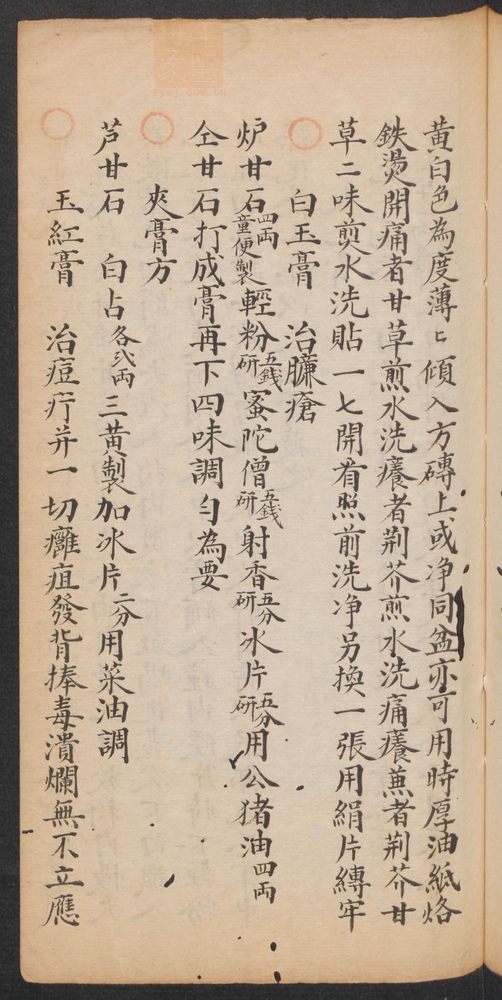 黄白色為度薄々傾入方磚上或净同盆亦可用時厚油紙烙
鉄燙開痛者甘草煎水洗癢者荆芥煎水洗痛癢兼者荆芥甘
草二味煎水洗貼一七開看照前洗净另換一張用絹片縛牢
白玉膏 治臁瘡
炉甘石四両童便製輕粉五錢研蜜陀僧五錢研射香五分研冰片五分研用公猪油四両
仝甘石打成膏再下四味調勻為要
夾膏方
芦甘石 白占各弍両三黄製加冰片二分用菜油調
玉紅膏 治痘疔并一切癰疽發背捧毒潰爛無不立應